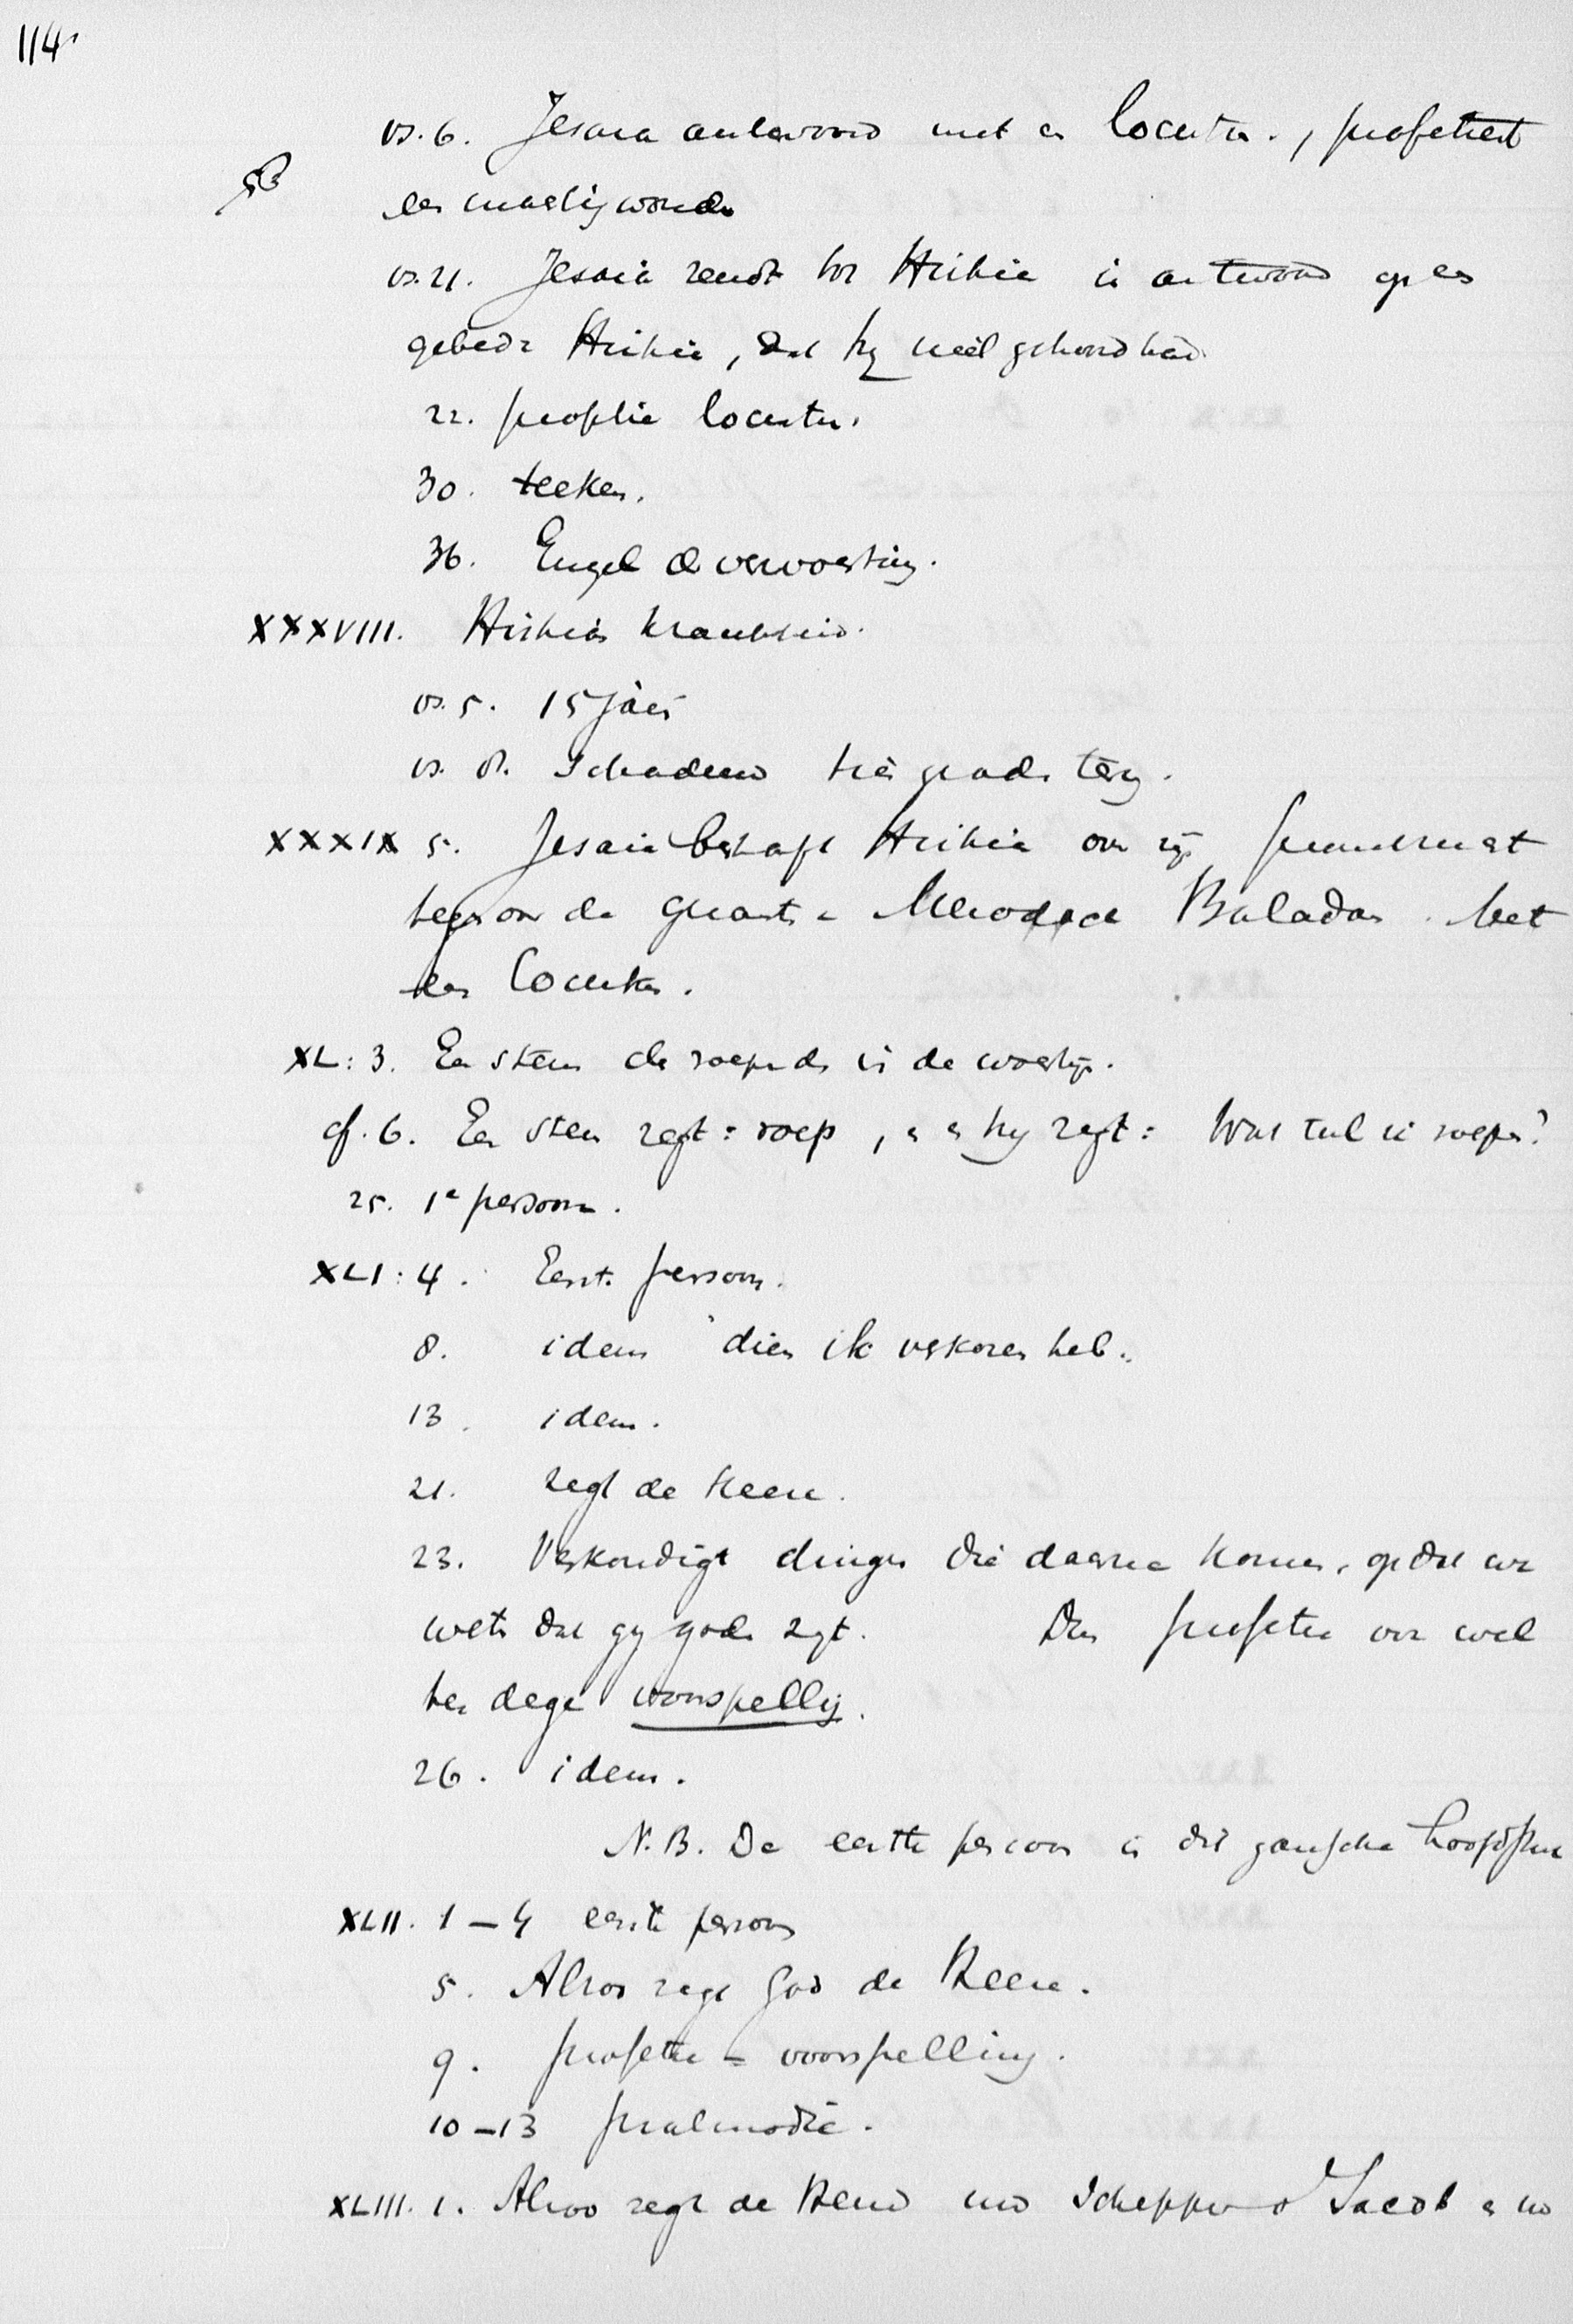 114
vs. 6. Jesaia antwoord met en locutie., profeteert
vs. 21. Jesaia zendt tot Hiskia in antwoord op een
gebed v Hiskia, dat hy niet gehoord had.
22. prophtie locutie.
30. teeken.
36. Engel d verwoesting.
XXXVIII. Hiskias krankheid.
vs. 5. 15 jaar
vs. 8. Schaduw tien grade terug.
XXXIX 5. Jesaia bestraft Hiskia over zijn
tegenover de gezant v Merodach Baladan. Met
een locutie.
XL: 3. Een stem des roepends in de woestijn.
cf. 6. Een stem zegt: roep, en hy zegt: Wat zal ik roepen?
25. 1e persoon.
XLI: 4. Eerste persoon.
8. idem dien ik verkoren heb.
13. idem.
21. zegt de Heere.
23. Verkondigt dingen die daarna komen, opdat we
weten dat gy goden zyt. Dus profetie wel
ter dege voorspelling.
26. idem.
N.B. De eerste persoon in dit gansche hoofdstuk
XLII. 1 – 4 eerste persoon
5. Alzoo zegt God de Heere.
9. profetie = voorspelling.
10 – 13 psalmodie.
XLIII. 1. Alzoo zegt de Heere uw Schepper o Jacob en uw